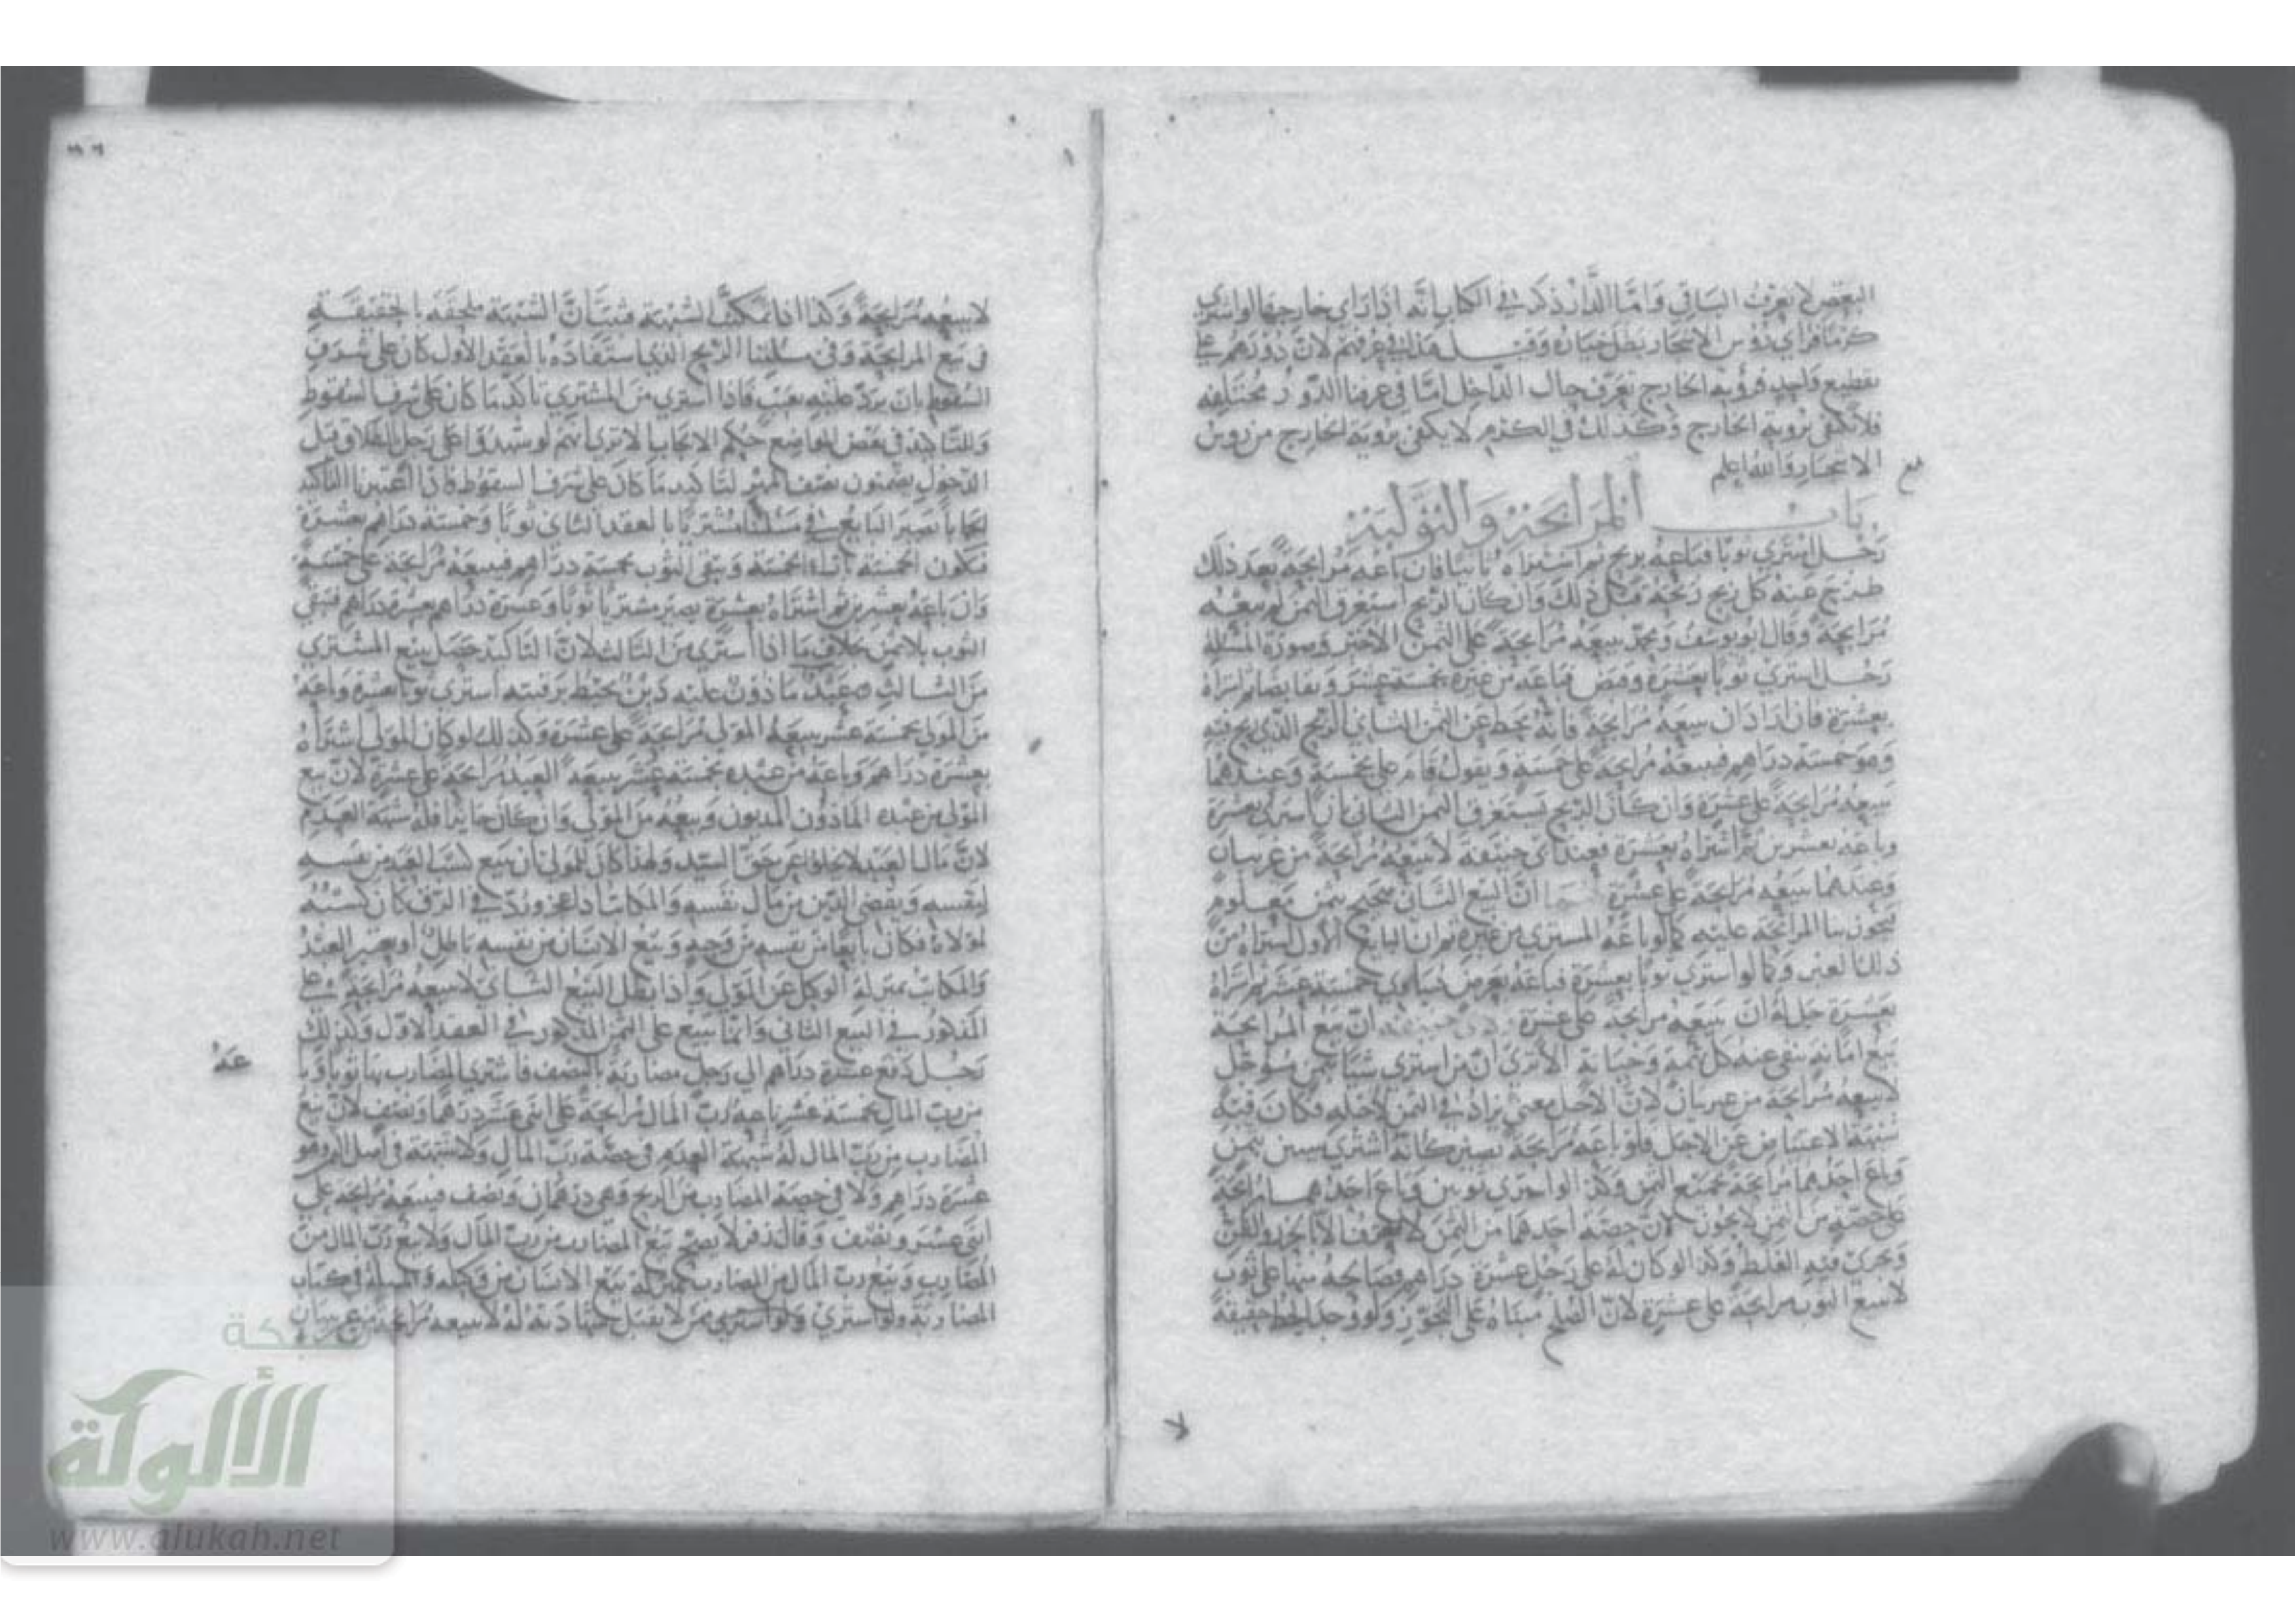 البعض لا يعرف الباقي واما الدار ذكر في الكتاب انه اذا راى خارجها او اشترى
كرما فراى رؤس الاشجار بطل خياره وقيل هذا في عرفهم لان دورهم على
تقطيع واحد فرؤية الخارج تعرف حال الداخل اما في عرفنا الدور مختلفة
فلا يكتفى برؤية الخارج وكذلك في الكرم لا يكفى برؤية الخارج من روس
الاشجار والله اعلم
باب المرابحة والتولية
رجل اشترى ثوبا فباعه بربح ثم اشتراه ثانيا فان باعه مرابحة بعد ذلك
طرح عنه كل ربح ربحه قبل ذلك وان كان الربح استغرق الثمن لم يبعه
مرابحة وقال ابو يوسف ومحمد يبيعه مرابحة على الثمن الاخير وصورة المسئلة
رجل اشترى ثوبا بعشرة وقبض فباعه من غيره بخمسة عشر وتقابضا ثم اشتراه
بعشرة فان اراد ان يبيعه مرابحة فانه يحط عن الثمن الثاني الربح الذي ربح فيه
وهو خمسة دراهم فيبيعه مرابحة على خمسة ويقول قام علي بخمسة وعندهما
يبيعه مرابحة على عشرة وان كان الربح يستغرق الثمن الثاني بان اشترى بعشرة
وباعه بعشرين ثم اشتراه بعشرة فعند ابي حنيفة لا يبيعه مرابحة من غير بيان
وعندهما يبيعه مرابحة على عشرة لهما ان البيع الثاني صحيح بثمن معلوم
يجوز بنا المرابحة عليه كما لو باعه المشتري من غيره ثم ان البائع الاول اشتراه من
ذلك الغير وكما لو اشترى ثوبا بعشرة فباعه بعرض يساوي خمسة عشر ثم اشتراه
بعشرة حل له ان يبيعه مرابحة على عشرة ولابي حنيفة ان بيع المرابحة
بيع امانة ينفى عنه كل تهمة وخيانة الا ترى ان من اشترى شيئا بثمن مؤجل
لا يبيعه مرابحة من غير بيان لان الاجل معنى يزاد في الثمن لاجله فكان فيه
شبهة الاعتياض عن الاجل فلو باعه مرابحة يصير كانه اشترى شيئين بثمن
وباع احدهما مرابحة بجميع الثمن وكذا لو اشترى ثوبين وباع احدهما مرابحة
على حصته من الثمن لا يجوز لان حصة احدهما من الثمن لا تعرف الا بالحزر والظن
ويجري فيه الغلط وكذا لو كان له على رجل عشرة دراهم فصالحه منها على ثوب
لا يبيع الثوب مرابحة على عشرة لان الصلح مبناه على التجوز ولو وجد الحط حقيقة
لا يبيعه مرابحة وكذا اذا تمكنت الشبهة فثبت ان الشبهة ملحقة بالحقيقة
في بيع المرابحة وفي مسئلتنا الربح الذي استفاده بالعقد الاول كان على شرف
السقوط بان يرد عليه بعيب فاذا اشترى من المشتري تاكد ما كان على شرف السقوط
وللتاكيد في بعض المواضع حكم الايجاب الا ترى انهم لو شهدوا على رجل بالطلاق قبل
الدخول يضمنون نصف المهر لتاكيد ما كان على شرف السقوط فاذا اعتبرنا التاكد
ايجابا يصير البائع في مسئلتنا مشتريا بالعقد الثاني ثوبا وخمسة دراهم بعشرة
فتكون الخمسة بازاء الخمسة ويبقى الثوب بخمسة دراهم فيبيعه مرابحة على خمسة
وان باعه بعشرين ثم اشتراه بعشرة يصير مشتريا ثوبا وعشرة دراهم بعشرة دراهم فيبقى
الثوب بلا ثمن بخلاف ما اذا اشترى من الثالث لان التاكيد حصل ببيع المشتري
من الثالث عبد ماذون عليه دين يحيط برقبته اشترى ثوبا بعشرة وباعه
من المولى بخمسة عشر يبيعه المولى مرابحة على عشرة وكذلك لو كان المولى اشتراه
بعشرة دراهم وباعه من عبده بخمسة عشر يبيعه العبد مرابحة على عشرة لان بيع
المولى من عبده الماذون المديون وبيعه من المولى وان كان جايزا فله شبهة العدم
لان مال العبد لا يخلو عن حق السيد ولهذا كان للمولى ان يبيع كسب العبد من نفسه
لنفسه ويقضي الدين من مال نفسه والمكاتب اذا عجز ورد في الرق كان كسبه
لمولاه فكان بايعا من نفسه من وجه وبيع الانسان من نفسه باطل او يعتبر العبد
والمكاتب بمنزلة الوكيل عن المولى واذا بطل البيع الثاني لا يبيعه مرابحة على
المذكور في البيع الثاني وانما يبيع على الثمن المذكور في العقد الاول وكذلك
رجل دفع عشرة دراهم الى رجل مضاربة بالنصف فاشترى المضارب بها ثوبا وباعه
من رب المال بخمسة عشر باعه رب المال مرابحة على اثنى عشر درهما ونصف لان بيع
المضارب من رب المال له شبهة العدم في حصة رب المال ولا شبهة في اصل المال وهو
عشرة دراهم ولا في حصة المضارب من الربح وهو درهمان ونصف فيبيعه مرابحة على
اثنى عشر ونصف وقال زفر لا يصح بيع المضارب من رب المال ولا بيع رب المال من
المضارب وبيع رب المال من المضارب بمنزلة بيع الانسان من وكيله والمسئلة في كتاب
المضاربة ولو اشترى ممن لا يقبل شهادته له لا يبيعه مرابحة من غير بيان
شبكة
الألوكة
www.alukah.net